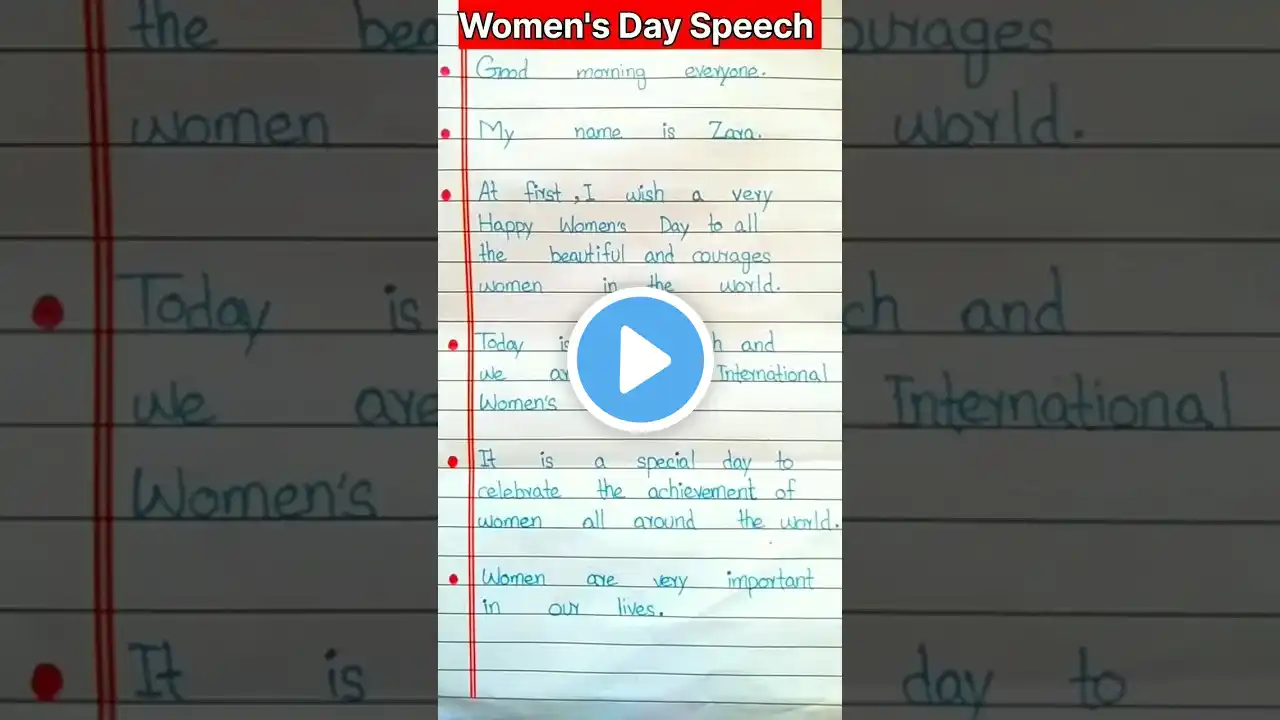 Women's Day Speech
Good morning everyone.
My name is Zara.
At first, I wish a very
Happy Women's Day to all
the beautiful and courages
women in the world.
Today is and
we are International
Women's
It is a special day to
celebrate the achievement of
women all around the world.
Women are very important
in our lives.